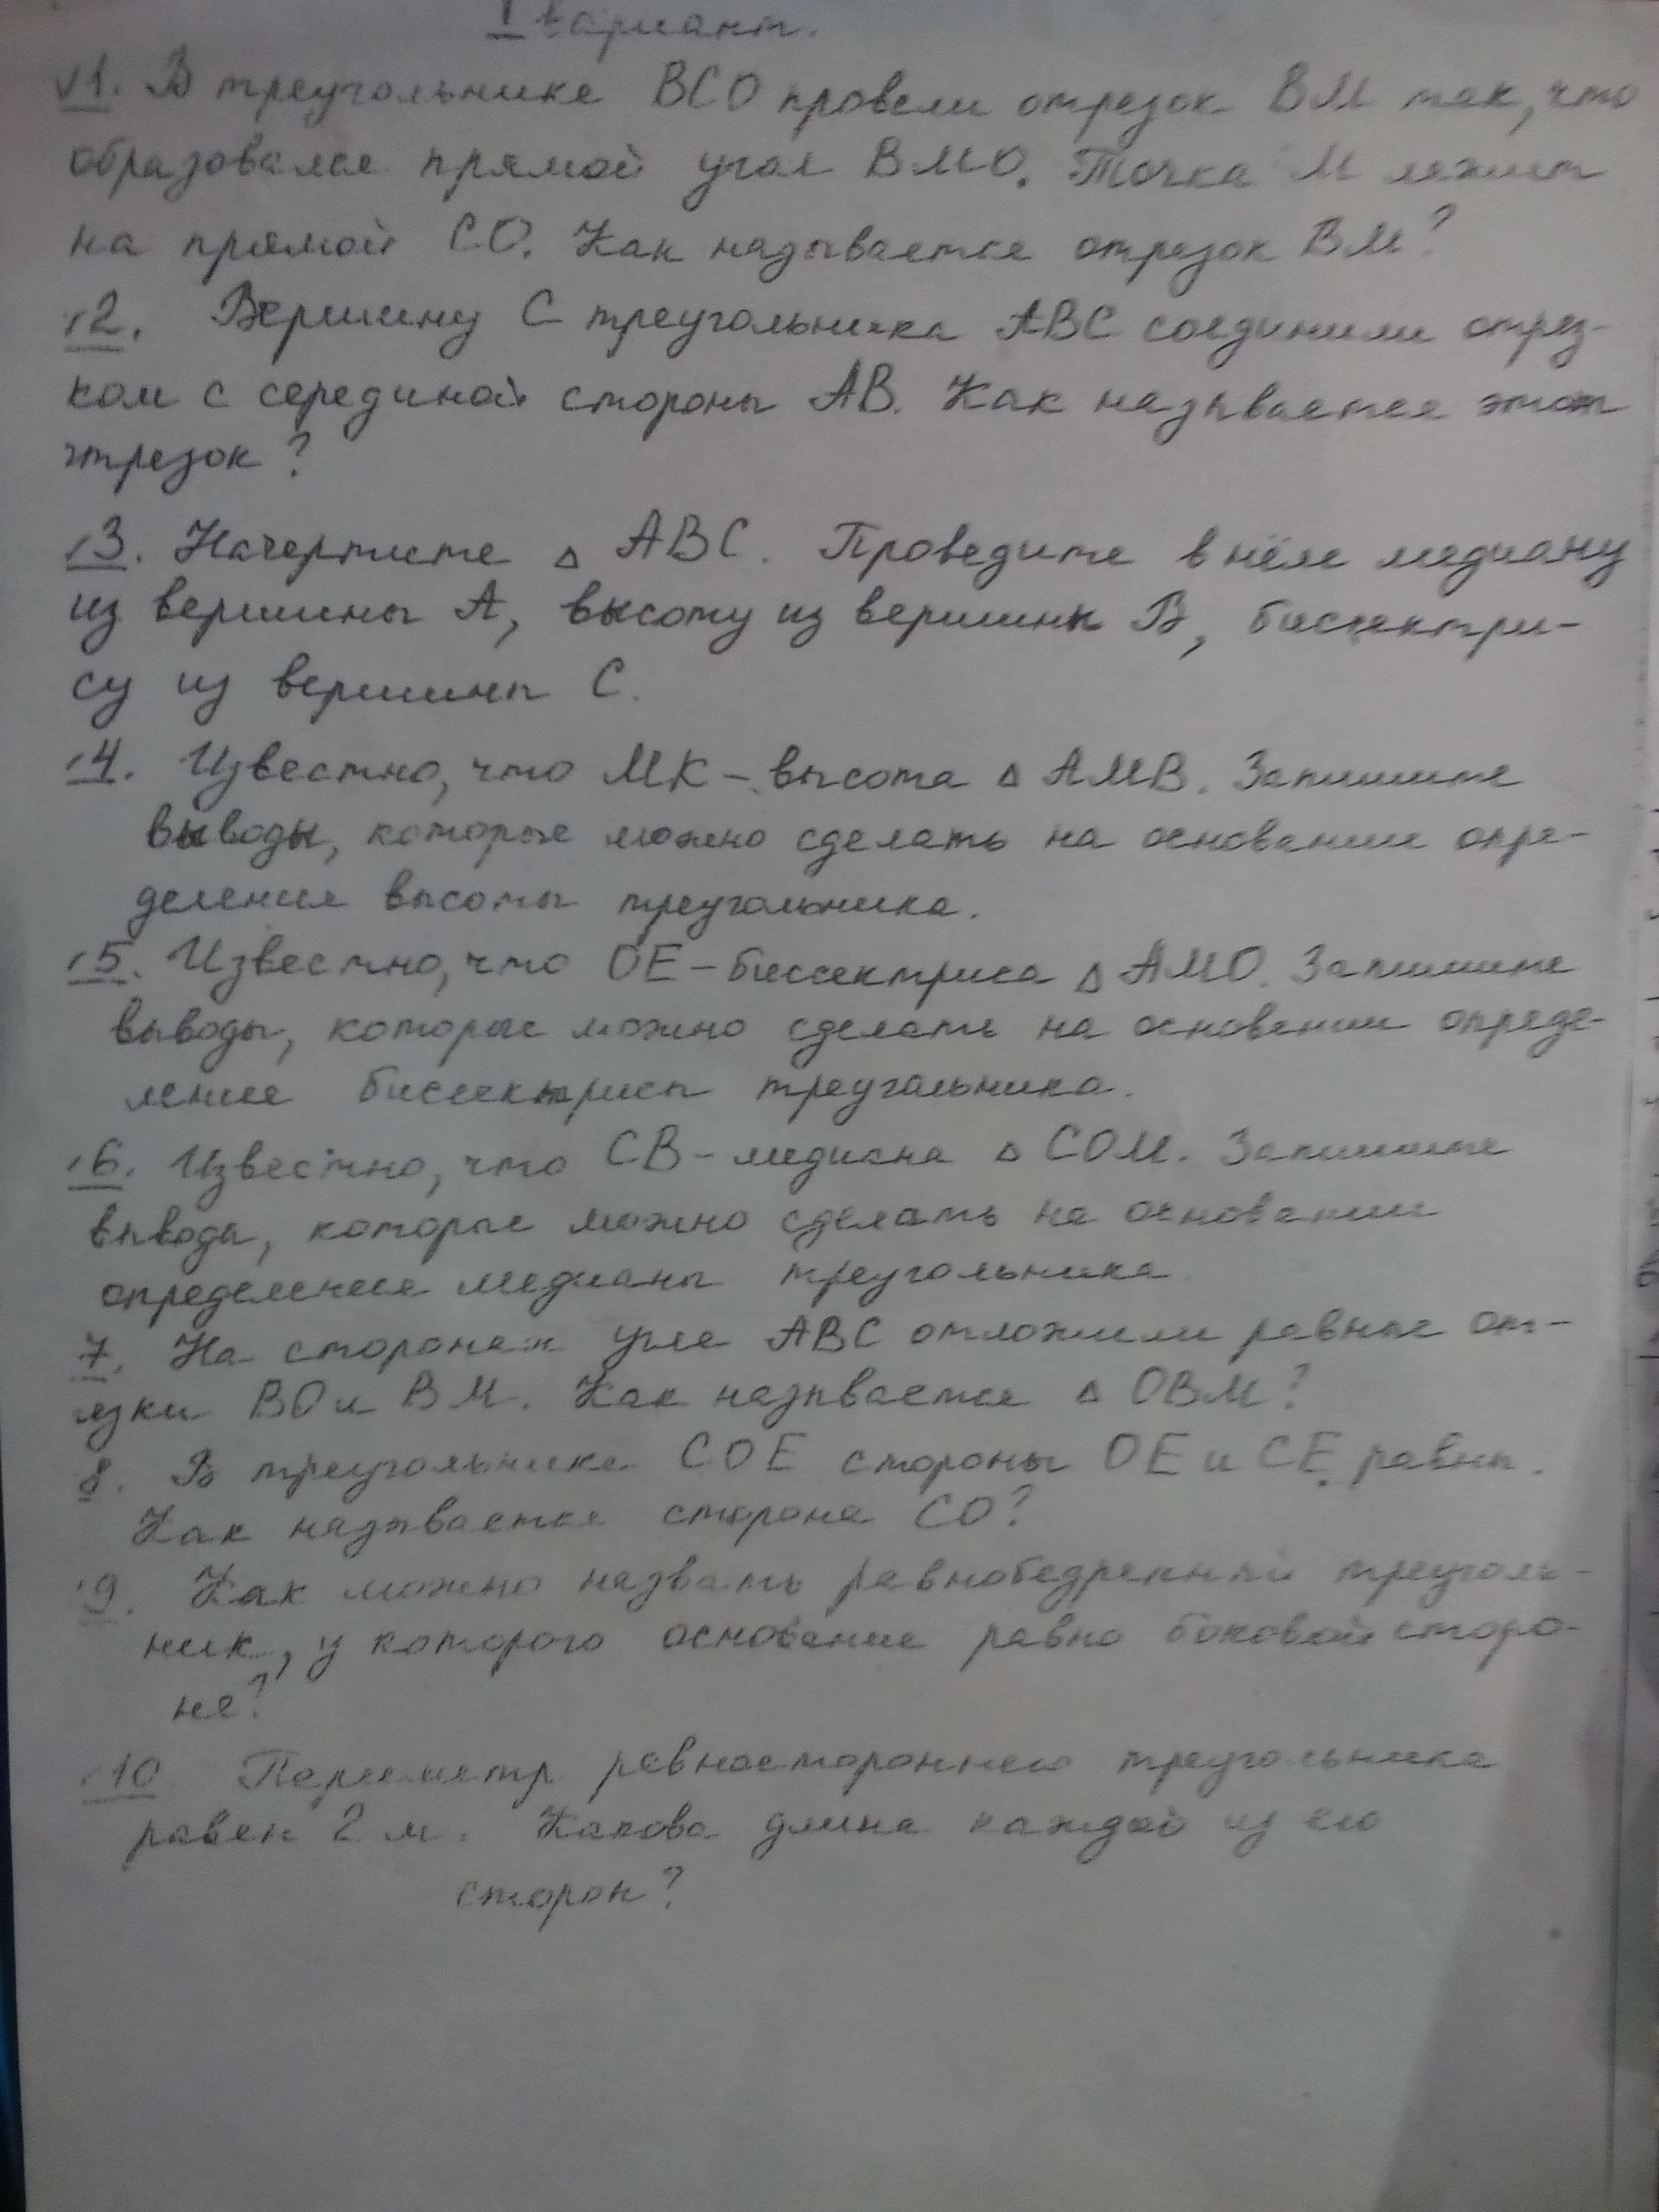 I вариант.
1. В треугольнике ВСО провели отрезок ВМ так, что
образовался прямой угол ВМО. Точка М лежит
на прямой СО. Как называется отрезок ВМ?
2. Вершину С треугольника АВС соединили отрез-
ком с серединой стороны АВ. Как называется этот
отрезок?
3. Начертите △ АВС. Проведите в нём медиану
из вершины А, высоту из вершины В, биссектри-
су из вершины С.
4. Известно, что МК – высота △ АМВ. Запишите
выводы, которые можно сделать на основании опре-
деления высоты треугольника.
5. Известно, что ОЕ – биссектриса △ АМО. Запишите
выводы, которые можно сделать на основании опреде-
ления биссектрисы треугольника.
6. Известно, что СВ – медиана △ СОМ. Запишите
выводы, которые можно сделать на основании
определения медианы треугольника
7. На сторонах угла АВС отложили равные от-
резки ВО и ВМ. Как называется △ ОВМ?
8. В треугольнике СОЕ стороны ОЕ и СЕ равны.
Как называется сторона СО?
9. Как можно назвать равнобедренный треуголь-
ник, у которого основание равно боковой сторо-
не?
10 Периметр равностороннего треугольника
равен 2 м. Какова длина каждой из его
сторон?